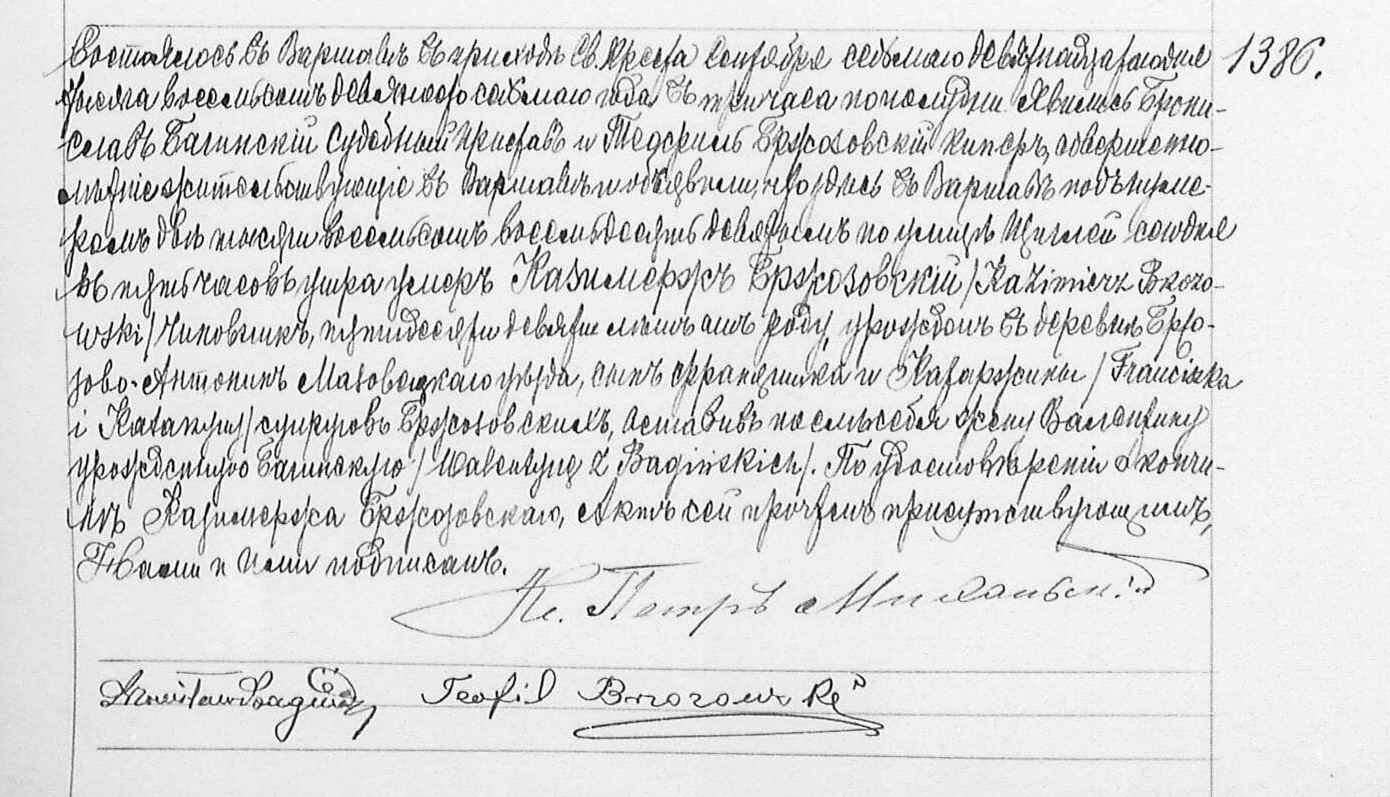 Состоялось въ Варшавѣ въ приходѣ Св. Креста Сентября седьмого девятнадцатого дня 1386.
тысяча восемьсотъ девяносто седьмаго года въ три часа пополудни. Явились Брони-
славъ Багинскій судебный приставъ и Теофиль Бржозовскій киперъ, совершенно-
лѣтніе жительствующіе въ Варшавѣ и объявили, что здѣсь въ Варшавѣ подъ нуме-
ромъ двѣ тысячи восемьсотъ восемьдесятъ девятымъ по улицѣ Щиглей сего дня
въ пять часовъ утра умеръ Казимержъ Бржозовскій /Kazimierz Brzozo-
wski/ чиновникъ, пятидесяти девяти лѣтъ отъ роду, урожденъ въ деревнѣ Брзо-
зово-Антонинъ Мазовецкаго уѣзда, сынъ Францишка и Катаржины /Franciszka
i Katarzyny/ супруговъ Бржозовскихъ, оставивъ послѣ себя жену Валентину
урожденную Багинскую /Walentynę z Bagińskich/. По удостовѣреніи о кончи-
нѣ Казимержа Бржозовскаго, Актъ сей прочтенъ присутствующимъ,
Нами и ими подписанъ.
Кс. Петръ Михальскій
Bronisław Bagiński Teofil Brzozowski